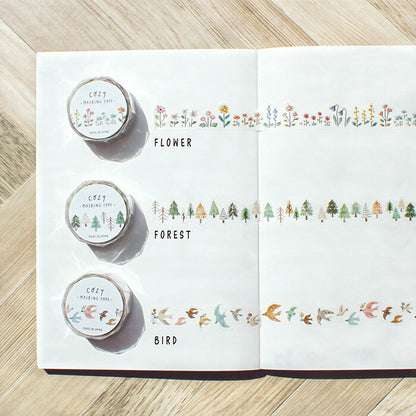 COZY
-MASKING TAPE-
MADE IN JAPAN
FLOWER
COZY
-MASKING TAPE-
MADE IN JAPAN
FOREST
COZY
-MASKING TAPE-
MADE IN JAPAN
BIRD